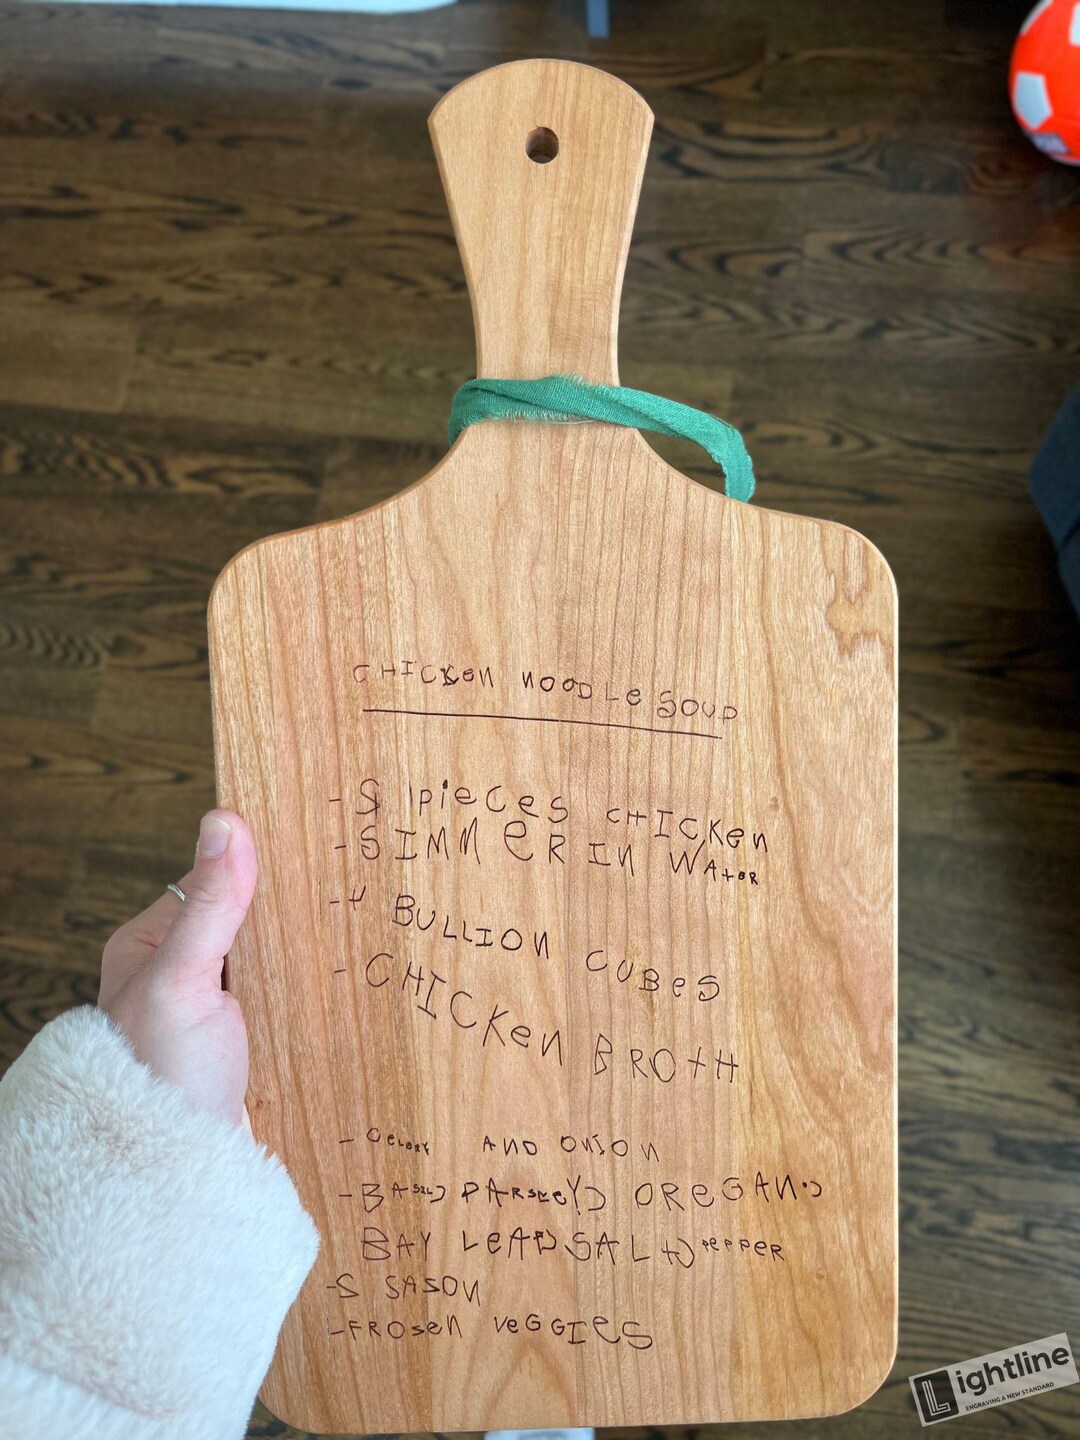 CHICKEN NOODLE SOUP
- 5 PIECES CHICKEN
- SIMMER IN WATER
- 4 BULLION CUBES
- CHICKEN BROTH
- CELERY AND ONION
- BASIL, PARSLEY, OREGANO,
BAY LEAF, SALT, PEPPER
- 5 SASON
- FROSEN VEGGIES
Lightline
ENGRAVING A NEW STANDARD